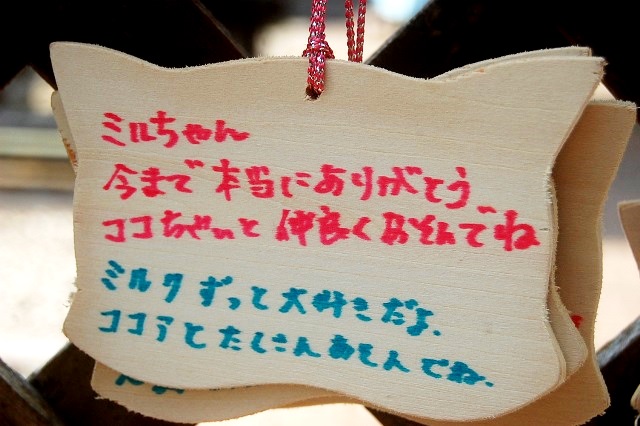 ミルちゃん
今まで本当にありがとう。
ココちゃんと仲良くあそんでね
ミルクずっと大好きだよ。
ココアとたくさんあそんでね。